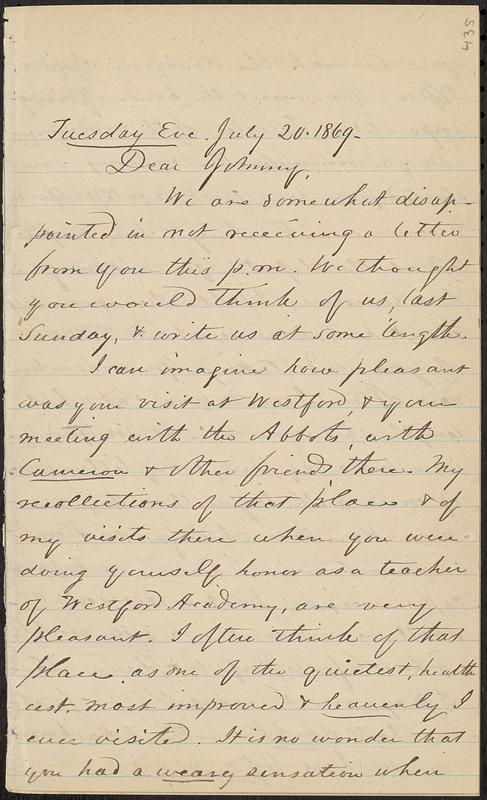 435
Tuesday Eve. July 20. 1869.
Dear Johnny,
We are somewhat disap-
pointed in not receiving a letter
from you this p.m. We thought
you would think of us, last
Sunday, & write us at some length.
I can imagine how pleasant
was your visit at Westford, & your
meeting with the Abbots, with
Cameron & other friends there. My
recollections of that place & of
my visits there when you were
doing yourself honor as a teacher
of Westford Academy, are very
pleasant. I often think of that
place, as one of the quietest, health
iest, most improved & heavenly I
ever visited. It is no wonder that
you had a weary sensation when